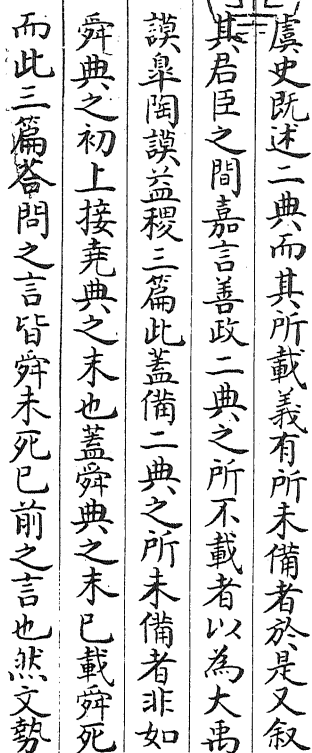 虞史既述二典而其所載義有所未備者於是又叙
其君臣之間嘉言善政二典之所不載者以為大禹
謨臯陶謨益稷三篇此蓋備二典之所未備者非如
舜典之初上接堯典之末也蓋舜典之末已載舜死
而此三篇荅問之言皆舜未死已前之言也然文勢